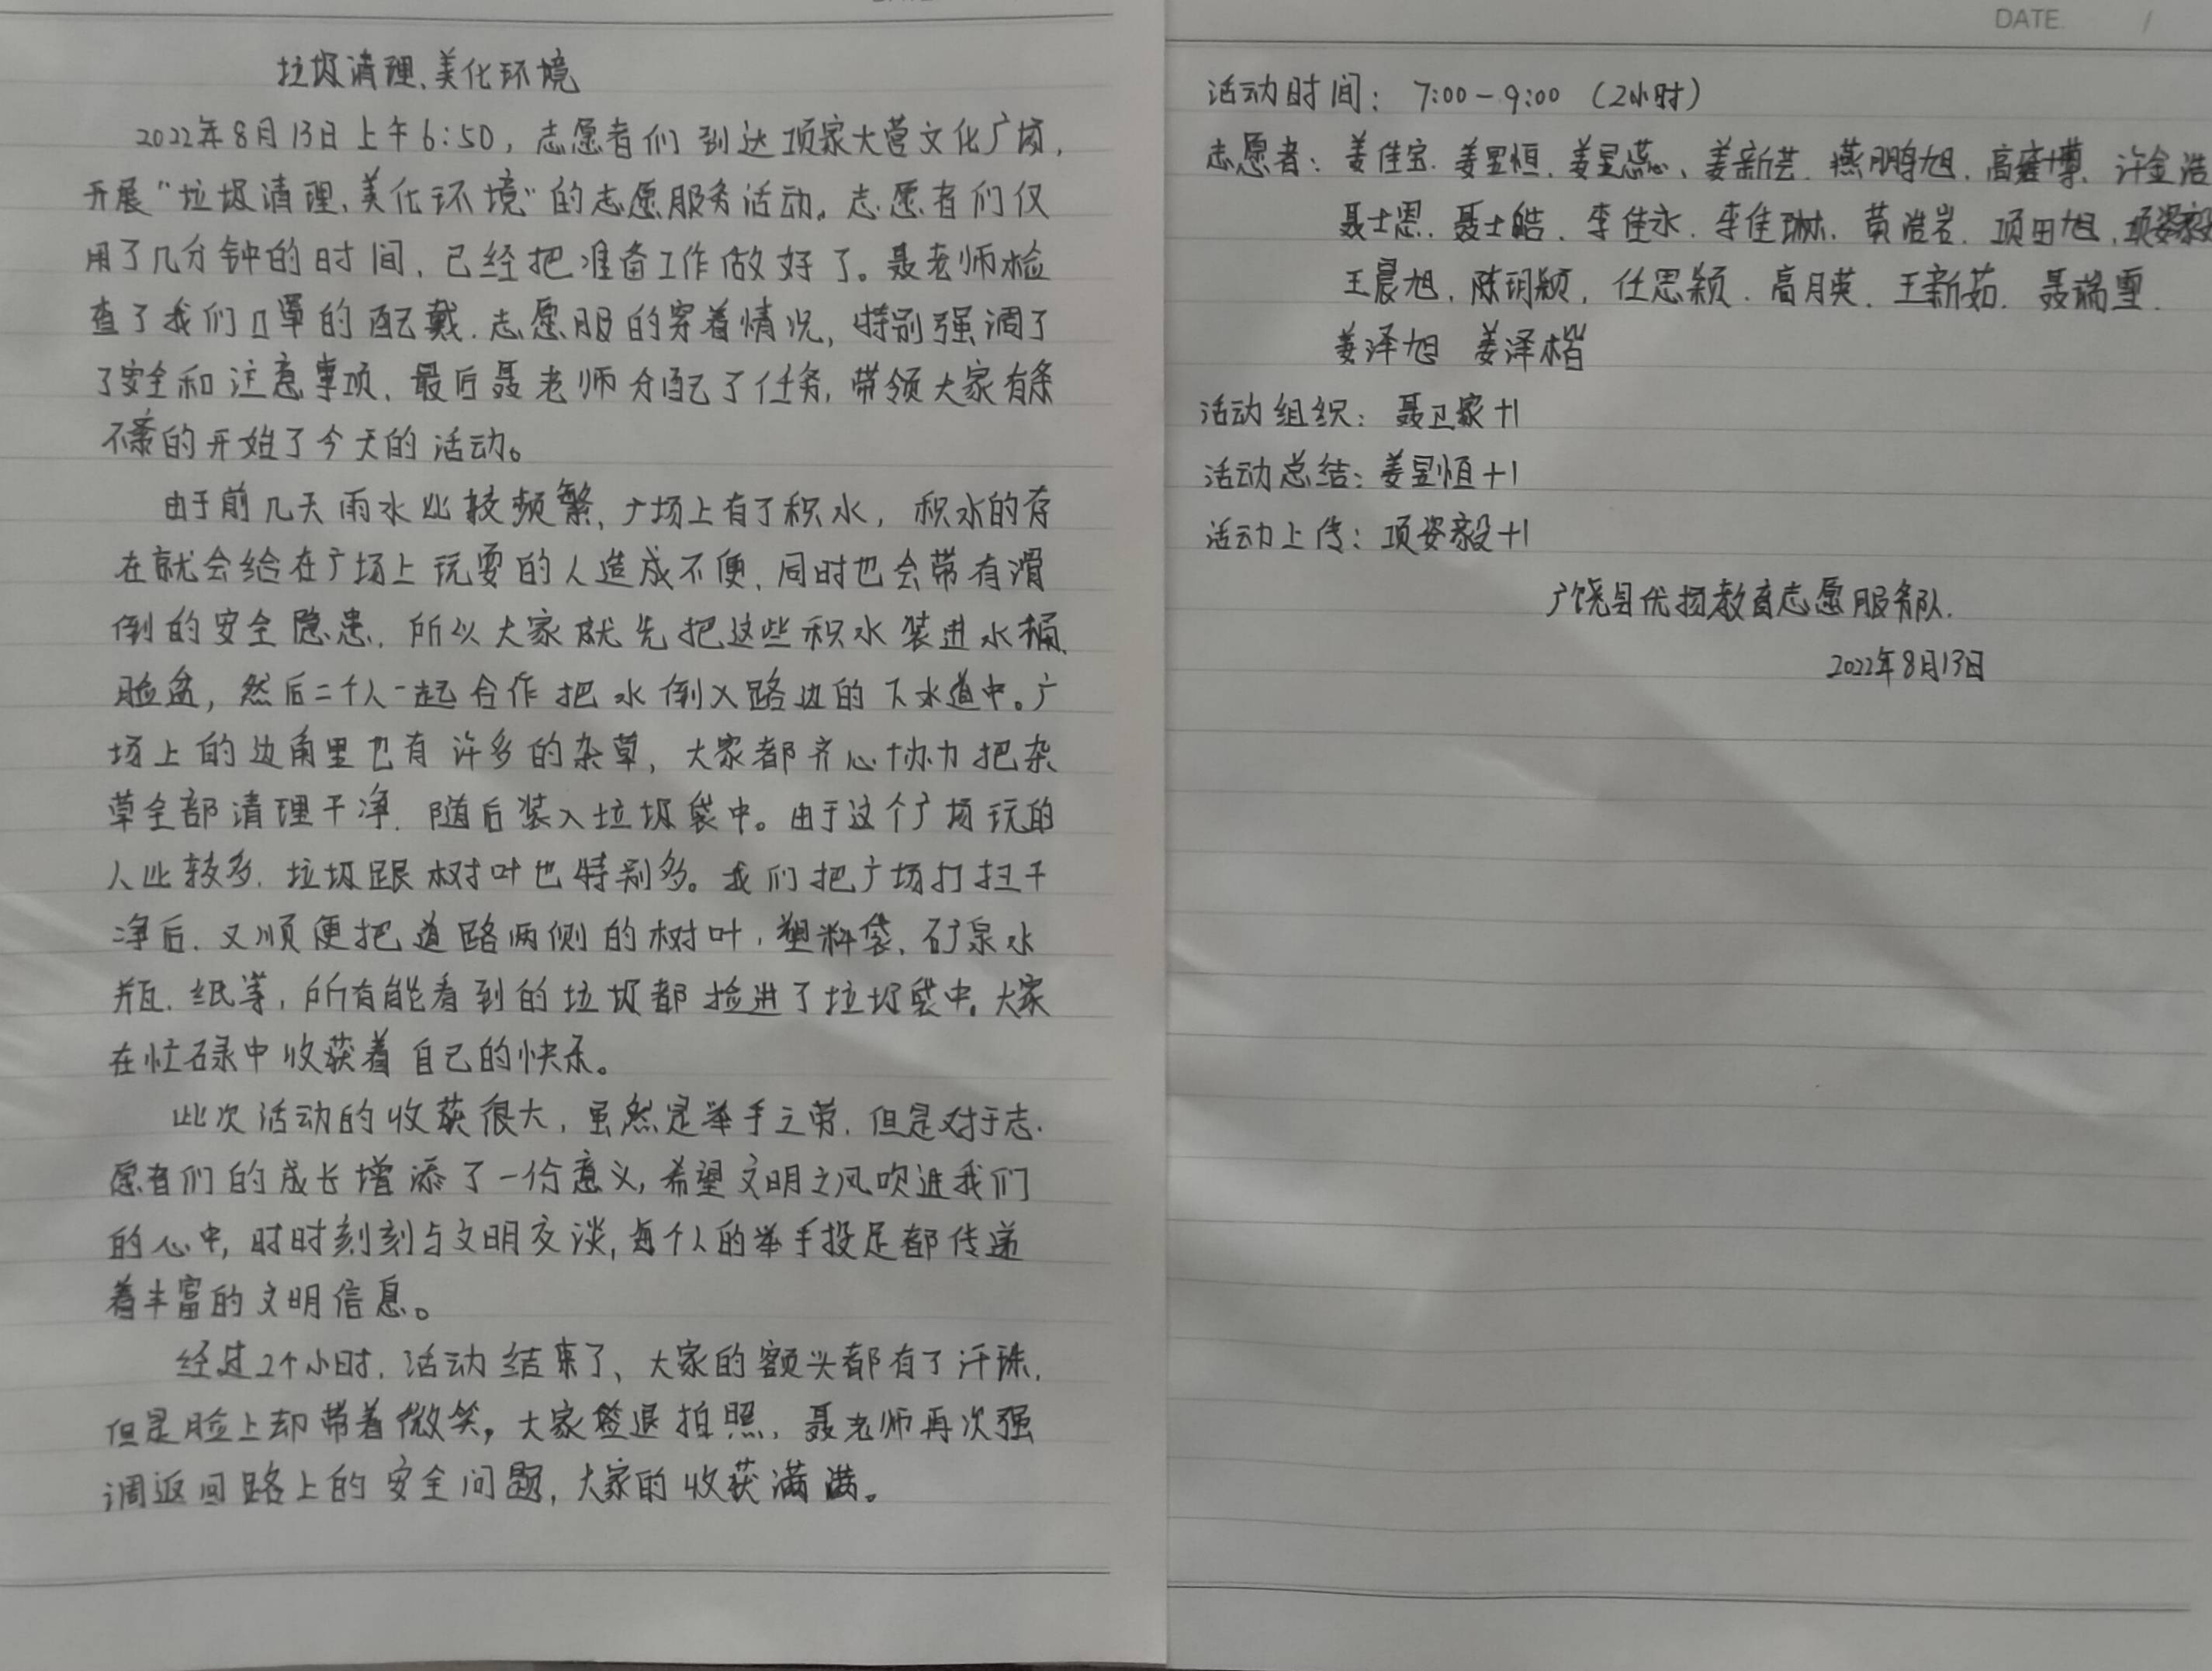 垃圾清理、美化环境
2022年8月13日上午6:50，志愿者们到达项家大营文化广场，
开展“垃圾清理、美化环境”的志愿服务活动。志愿者们仅
用了几分钟的时间，已经把准备工作做好了。聂老师检
查了我们口罩的配戴、志愿服的穿着情况，特别强调了
了安全和注意事项，最后聂老师分配了任务，带领大家有条
不紊的开始了今天的活动。
由于前几天雨水比较频繁、广场上有了积水，积水的存
在就会给在广场上玩耍的人造成不便，同时也会带有滑
倒的安全隐患，所以大家就先把这些积水装进水桶、
脸盆，然后二个人一起合作把水倒入路边的下水道中。广
场上的边角里也有许多的杂草，大家都齐心协力把杂
草全部清理干净，随后装入垃圾袋中。由于这个广场玩的
人比较多，垃圾跟树叶也特别多。我们把广场打扫干
净后，又顺便把道路两侧的树叶，塑料袋、矿泉水
瓶、纸等，所有能看到的垃圾都捡进了垃圾袋中。大家
在忙碌中收获着自己的快乐。
此次活动的收获很大，虽然是举手之劳，但是对于志
愿者们的成长增添了一份意义，希望文明之风吹进我们
的心中，时时刻刻与文明交谈，每个人的举手投足都传递
着丰富的文明信息。
经过2个小时，活动结束了、大家的额头都有了汗珠，
但是脸上却带着微笑，大家签退拍照，聂老师再次强
调返回路上的安全问题，大家的收获满满。
DATE /
活动时间： 7:00-9:00 （2小时）
志愿者：姜佳宝、姜昱恒、姜昱蕊、姜新芸、燕鹏旭、高 博、许金浩
聂士恩、聂士皓、李佳永、李佳琳、黄浩岩、项田旭、项姿毅
王晨旭、陈玥颖，任思颖、高月英、王新茹、聂瑞雪、
姜泽旭 姜泽楷
活动组织：聂卫家+1
活动总结：姜昱恒+1
活动上传：项姿毅+1
广饶县优扬教育志愿服务队
2022年8月13日